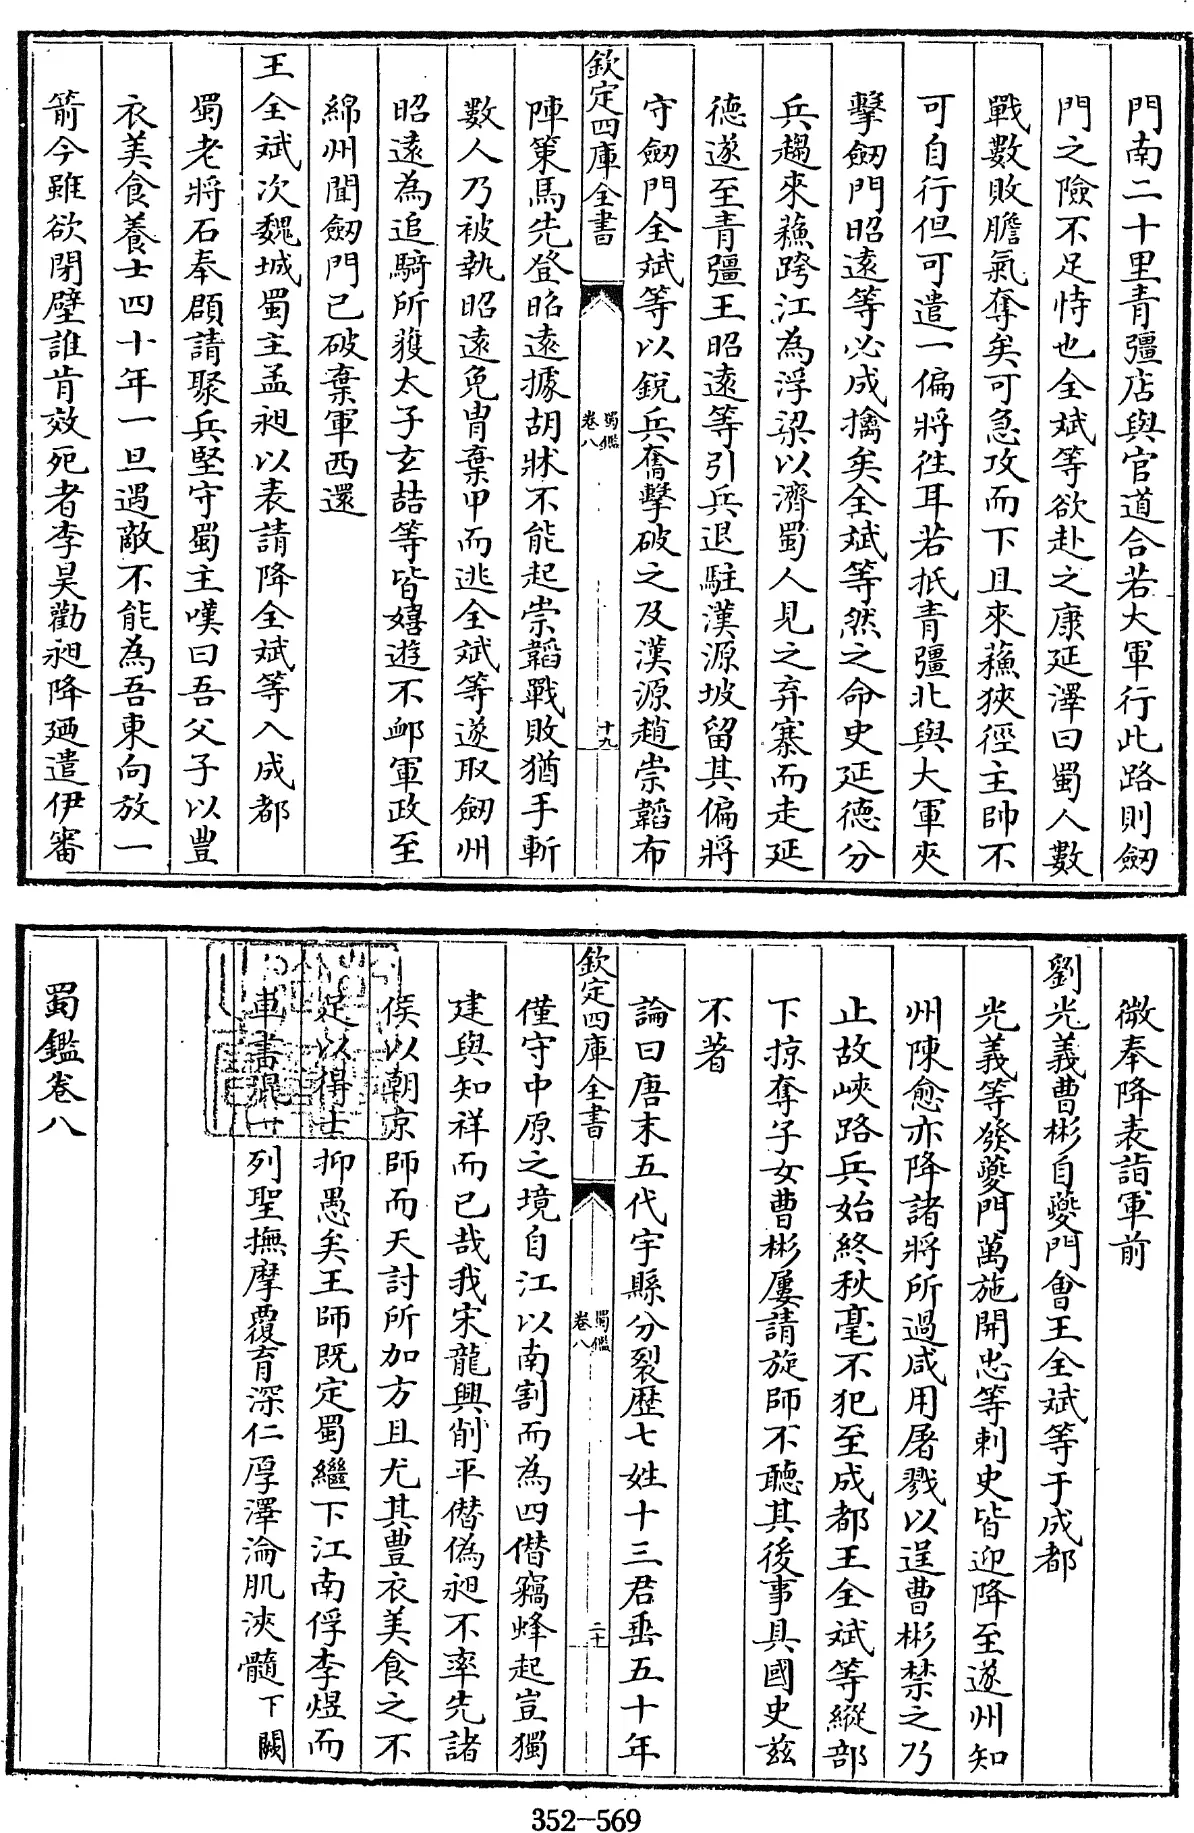 門南二十里青彊店與官道合若大軍行此路則劒
門之險不足恃也全斌等欲赴之康延澤曰蜀人數
戰數敗膽氣奪矣可急攻而下且來蘓狹徑主帥不
可自行但可遣一偏將徃耳若抵青彊北與大軍夾
擊劒門昭遠等必成擒矣全斌等然之命史延德分
兵趨來蘓跨江為浮梁以濟蜀人見之弃寨而走延
德遂至青彊王昭遠等引兵退駐漢源坡留其偏將
守劒門全斌等以銳兵奮擊破之及漢源趙崇韜布
欽定四庫全書
蜀鑑
卷八
十九
陣策馬先登昭遠據胡牀不能起崇韜戰敗猶手斬
數人乃被執昭遠免胄棄甲而逃全斌等遂取劒州
昭遠為追騎所獲太子玄喆等皆嬉遊不卹軍政至
綿州聞劒門已破棄軍西還
王全斌次魏城蜀主孟昶以表請降全斌等入成都
蜀老將石奉頵請聚兵堅守蜀主嘆曰吾父子以豐
衣美食養士四十年一旦遇敵不能為吾東向放一
箭今雖欲閉壁誰肯效死者李昊勸昶降廼遣伊審
微奉降表詣軍前
劉光義曹彬自夔門會王全斌等于成都
光義等發夔門萬施開忠等剌史皆迎降至遂州知
州陳愈亦降諸將所過咸用屠戮以逞曹彬禁之乃
止故峽路兵始終秋毫不犯至成都王全斌等縱部
下掠奪子女曹彬屢請旋師不聽其後事具國史兹
不著
論曰唐末五代宇縣分裂歷七姓十三君垂五十年
欽定四庫全書
蜀鑑
卷八
二十
僅守中原之境自江以南割而為四僣竊蜂起豈獨
建與知祥而已哉我宋龍興削平僣偽昶不率先諸
侯以朝京師而天討所加方且尤其豐衣美食之不
足以得士抑愚矣王師既定蜀繼下江南俘李煜而
車書混一列聖撫摩覆育深仁厚澤淪肌浹髓下闕
蜀鑑卷八
352-569